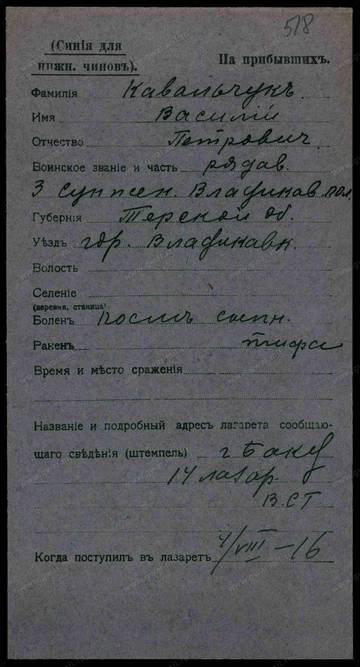 578
(Синія для
нижн. чиновъ).
На прибывшихъ.
Фамилія Кавальчукъ
Имя Василій
Отчество Петровичъ
Воинское званіе и часть рядав.
3 Владикав пол
Губернія Терской об.
Уѣздъ гор. Владикавк.
Волость
Селеніе
(деревня, станица)
Боленъ послѣ сыпн.
Раненъ тифа
Время и мѣсто сраженія
Названіе и подробный адресъ лазарета сообщаю-
щаго свѣдѣнія (штемпель) г Баку
14 лазар.
В.С.Г
Когда поступилъ въ лазаретъ 4/VIII-16